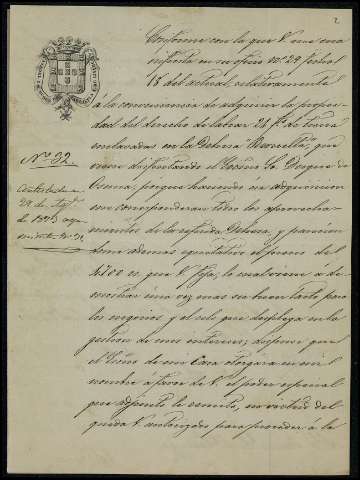 2
Conforme con lo que V. me ma
nifiesta en su oficio nº 29 fecha
18 del actual, relativamente
á la conveniencia de adquirir la propie
dad del derecho de labrar 24 fs. de tierra
enclavadas en la Dehesa que
viene disfrutando el Excmo. Sr. Duque de
Osuna; porque haciendo su adquisicion
me corresponderan todos los aprovecha
mientos de la referida Dehesa, y parecien
dome ademas equitativo el precio de
rs. que V. fija; lo cual viene á de
mostrar una vez mas su buen tacto para
los negocios y el celo que desplega en la
gestion de mis intereses; dispuse que
el de mi Casa otorgara en mi
nombre á favor de V. el poder especial
que adjunto le remito, en virtud del
queda V. autorizado para proceder á la
Nº 32.
Contestada en
29 de
de 1893 bajo
nº 31